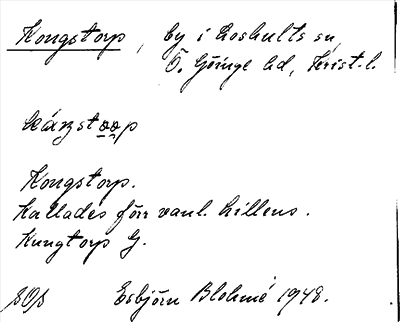 Kongstorp, by i Loshults sn,
Ö. Göinge hd, Krist. l.
Kongstorp.
Kallades förr vanl. Lillens.
Kungtorp G.
Esbjörn Blohmé 1948.